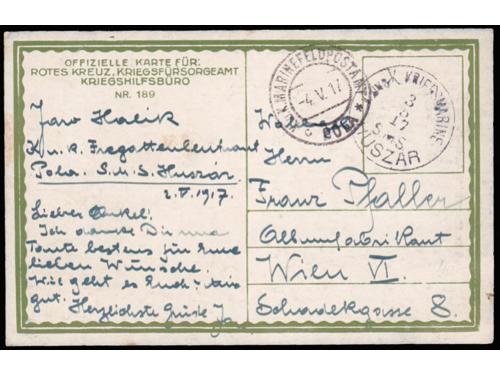 OFFIZIELLE KARTE FÜR:
ROTES KREUZ, KRIEGSFÜRSORGEAMT
KRIEGSHILFSBÜRO
NR. 189
Jaro Holik
K.u.K. Fregattenleutnant
Pola. S.M.S. Huszár.
2.V.1917.
Lieber Onkel!
Ich danke Dir und
Tante bestens für Eure
lieben Wünsche.
Wie geht es Euch? Mir
gut. Herzlichste Grüße
K.u.K. MARINEFELDPOSTAMT
-4.V.17
POLA
K.u.K. KRIEGSMARINE
3
17
S.M.S.
HUSZAR
Herrn
Franz Pfaller
Albumfabrikant
Wien VI.
Schadekgasse 8.